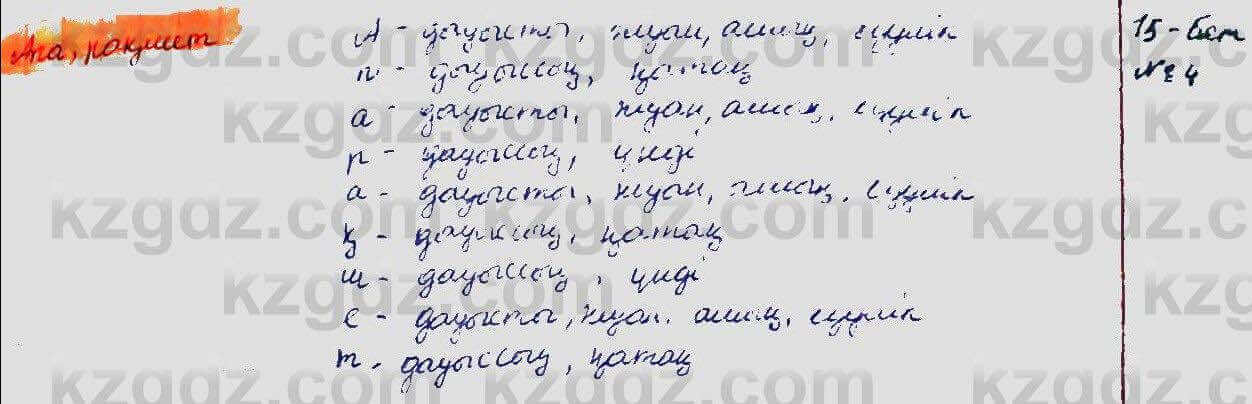 Ага, рақмет
А - дауысты, жуан, ашық, езулік
п - дауыссыз, қатаң
а - дауысты, жуан, ашық, езулік
р - дауыссыз, үнді
а - дауысты, жуан, ашық, езулік
қ - дауыссыз, қатаң
м - дауыссыз, үнді
е - дауысты, жуан, ашық, езулік
т - дауыссыз, қатаң
15-бет
№ 4
kzgdz.com